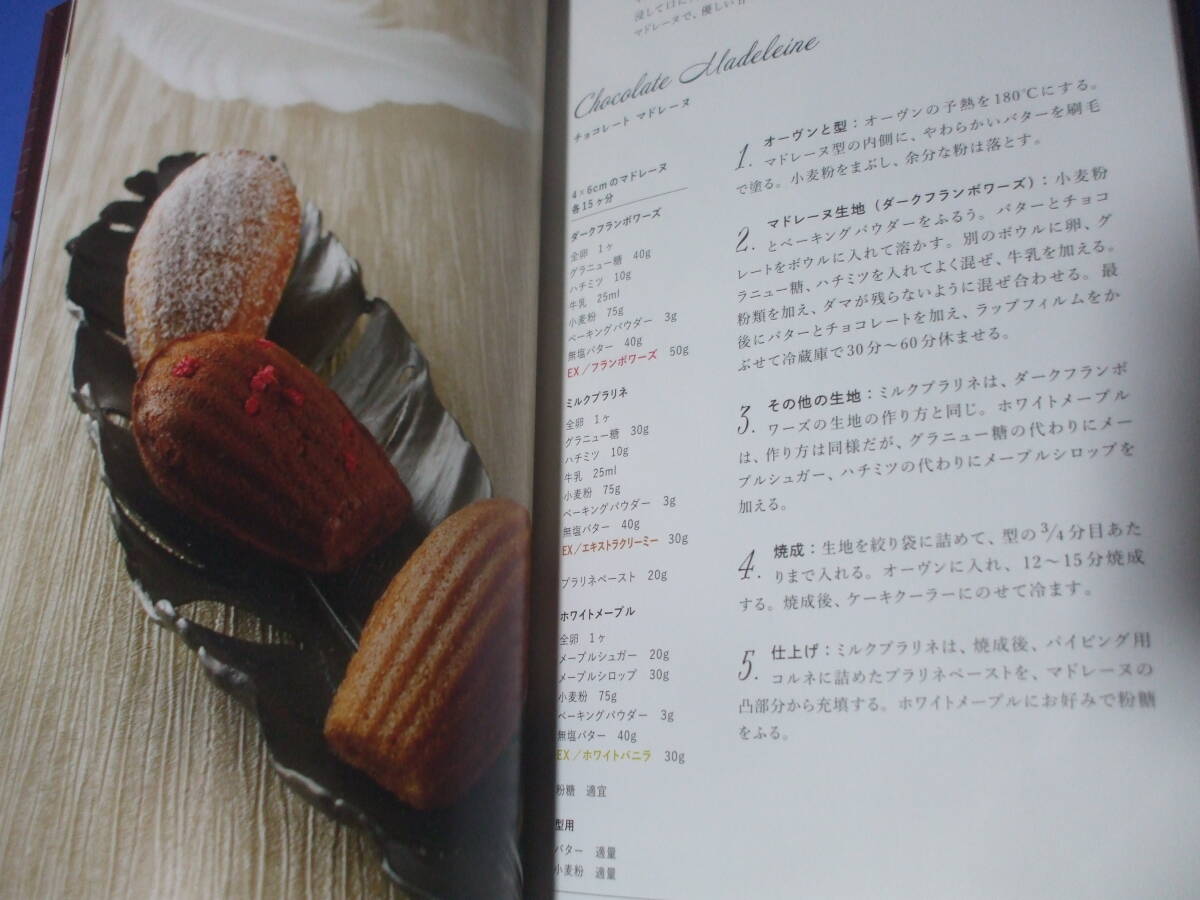 浸して口に
マドレーヌで、優しい甘
Chocolate Madeleine
チョコレート マドレーヌ
4×6cmのマドレーヌ
各15ヶ分
ダークフランボワーズ
全卵 1ヶ
グラニュー糖 40g
ハチミツ 10g
牛乳 25ml
小麦粉 75g
ベーキングパウダー 3g
無塩バター 40g
EX/フランボワーズ 50g
ミルクプラリネ
全卵 1ヶ
グラニュー糖 30g
ハチミツ 10g
牛乳 25ml
小麦粉 75g
ベーキングパウダー 3g
無塩バター 40g
EX/エキストラクリーミー 30g
プラリネペースト 20g
ホワイトメープル
全卵 1ヶ
メープルシュガー 20g
メープルシロップ 30g
小麦粉 75g
ベーキングパウダー 3g
無塩バター 40g
EX/ホワイトバニラ 30g
粉糖 適宜
型用
バター 適量
小麦粉 適量
1. オーヴンと型：オーヴンの予熱を180℃にする。
マドレーヌ型の内側に、やわらかいバターを刷毛
で塗る。小麦粉をまぶし、余分な粉は落とす。
2. マドレーヌ生地（ダークフランボワーズ）：小麦粉
とベーキングパウダーをふるう。バターとチョコ
レートをボウルに入れて溶かす。別のボウルに卵、グ
ラニュー糖、ハチミツを入れてよく混ぜ、牛乳を加える。
粉類を加え、ダマが残らないように混ぜ合わせる。最
後にバターとチョコレートを加え、ラップフィルムをか
ぶせて冷蔵庫で30分〜60分休ませる。
3. その他の生地：ミルクプラリネは、ダークフランボ
ワーズの生地の作り方と同じ。ホワイトメープル
は、作り方は同様だが、グラニュー糖の代わりにメー
プルシュガー、ハチミツの代わりにメープルシロップを
加える。
4. 焼成：生地を絞り袋に詰めて、型の3/4分目あた
りまで入れる。オーヴンに入れ、12〜15分焼成
する。焼成後、ケーキクーラーにのせて冷ます。
5. 仕上げ：ミルクプラリネは、焼成後、パイピング用
コルネに詰めたプラリネペーストを、マドレーヌの
凸部分から充填する。ホワイトメープルにお好みで粉糖
をふる。